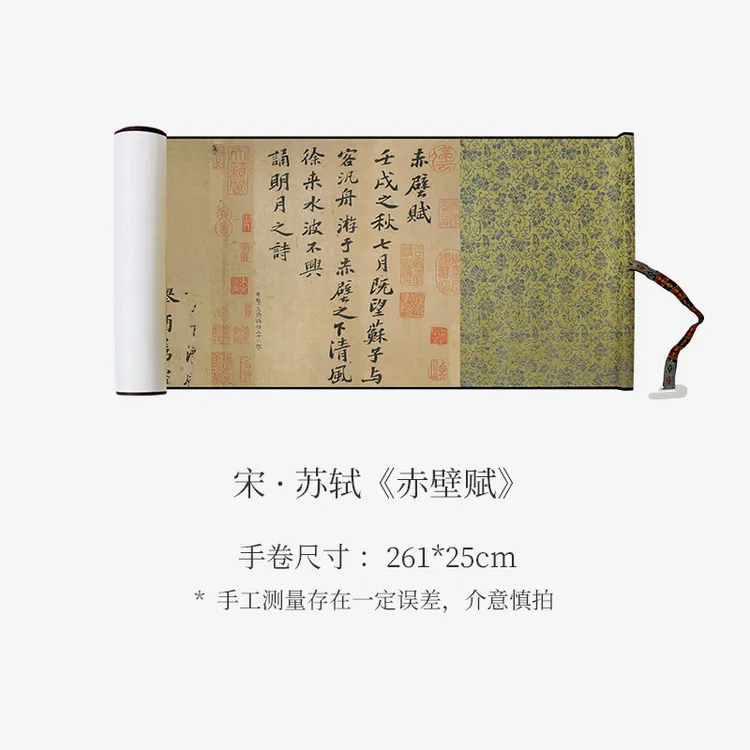 赤壁賦
壬戌之秋七月既望蘇子与
客汎舟游于赤壁之下清風
徐来水波不興
誦明月之詩
宋·苏轼《赤壁赋》
手卷尺寸：261*25cm
* 手工测量存在一定误差，介意慎拍